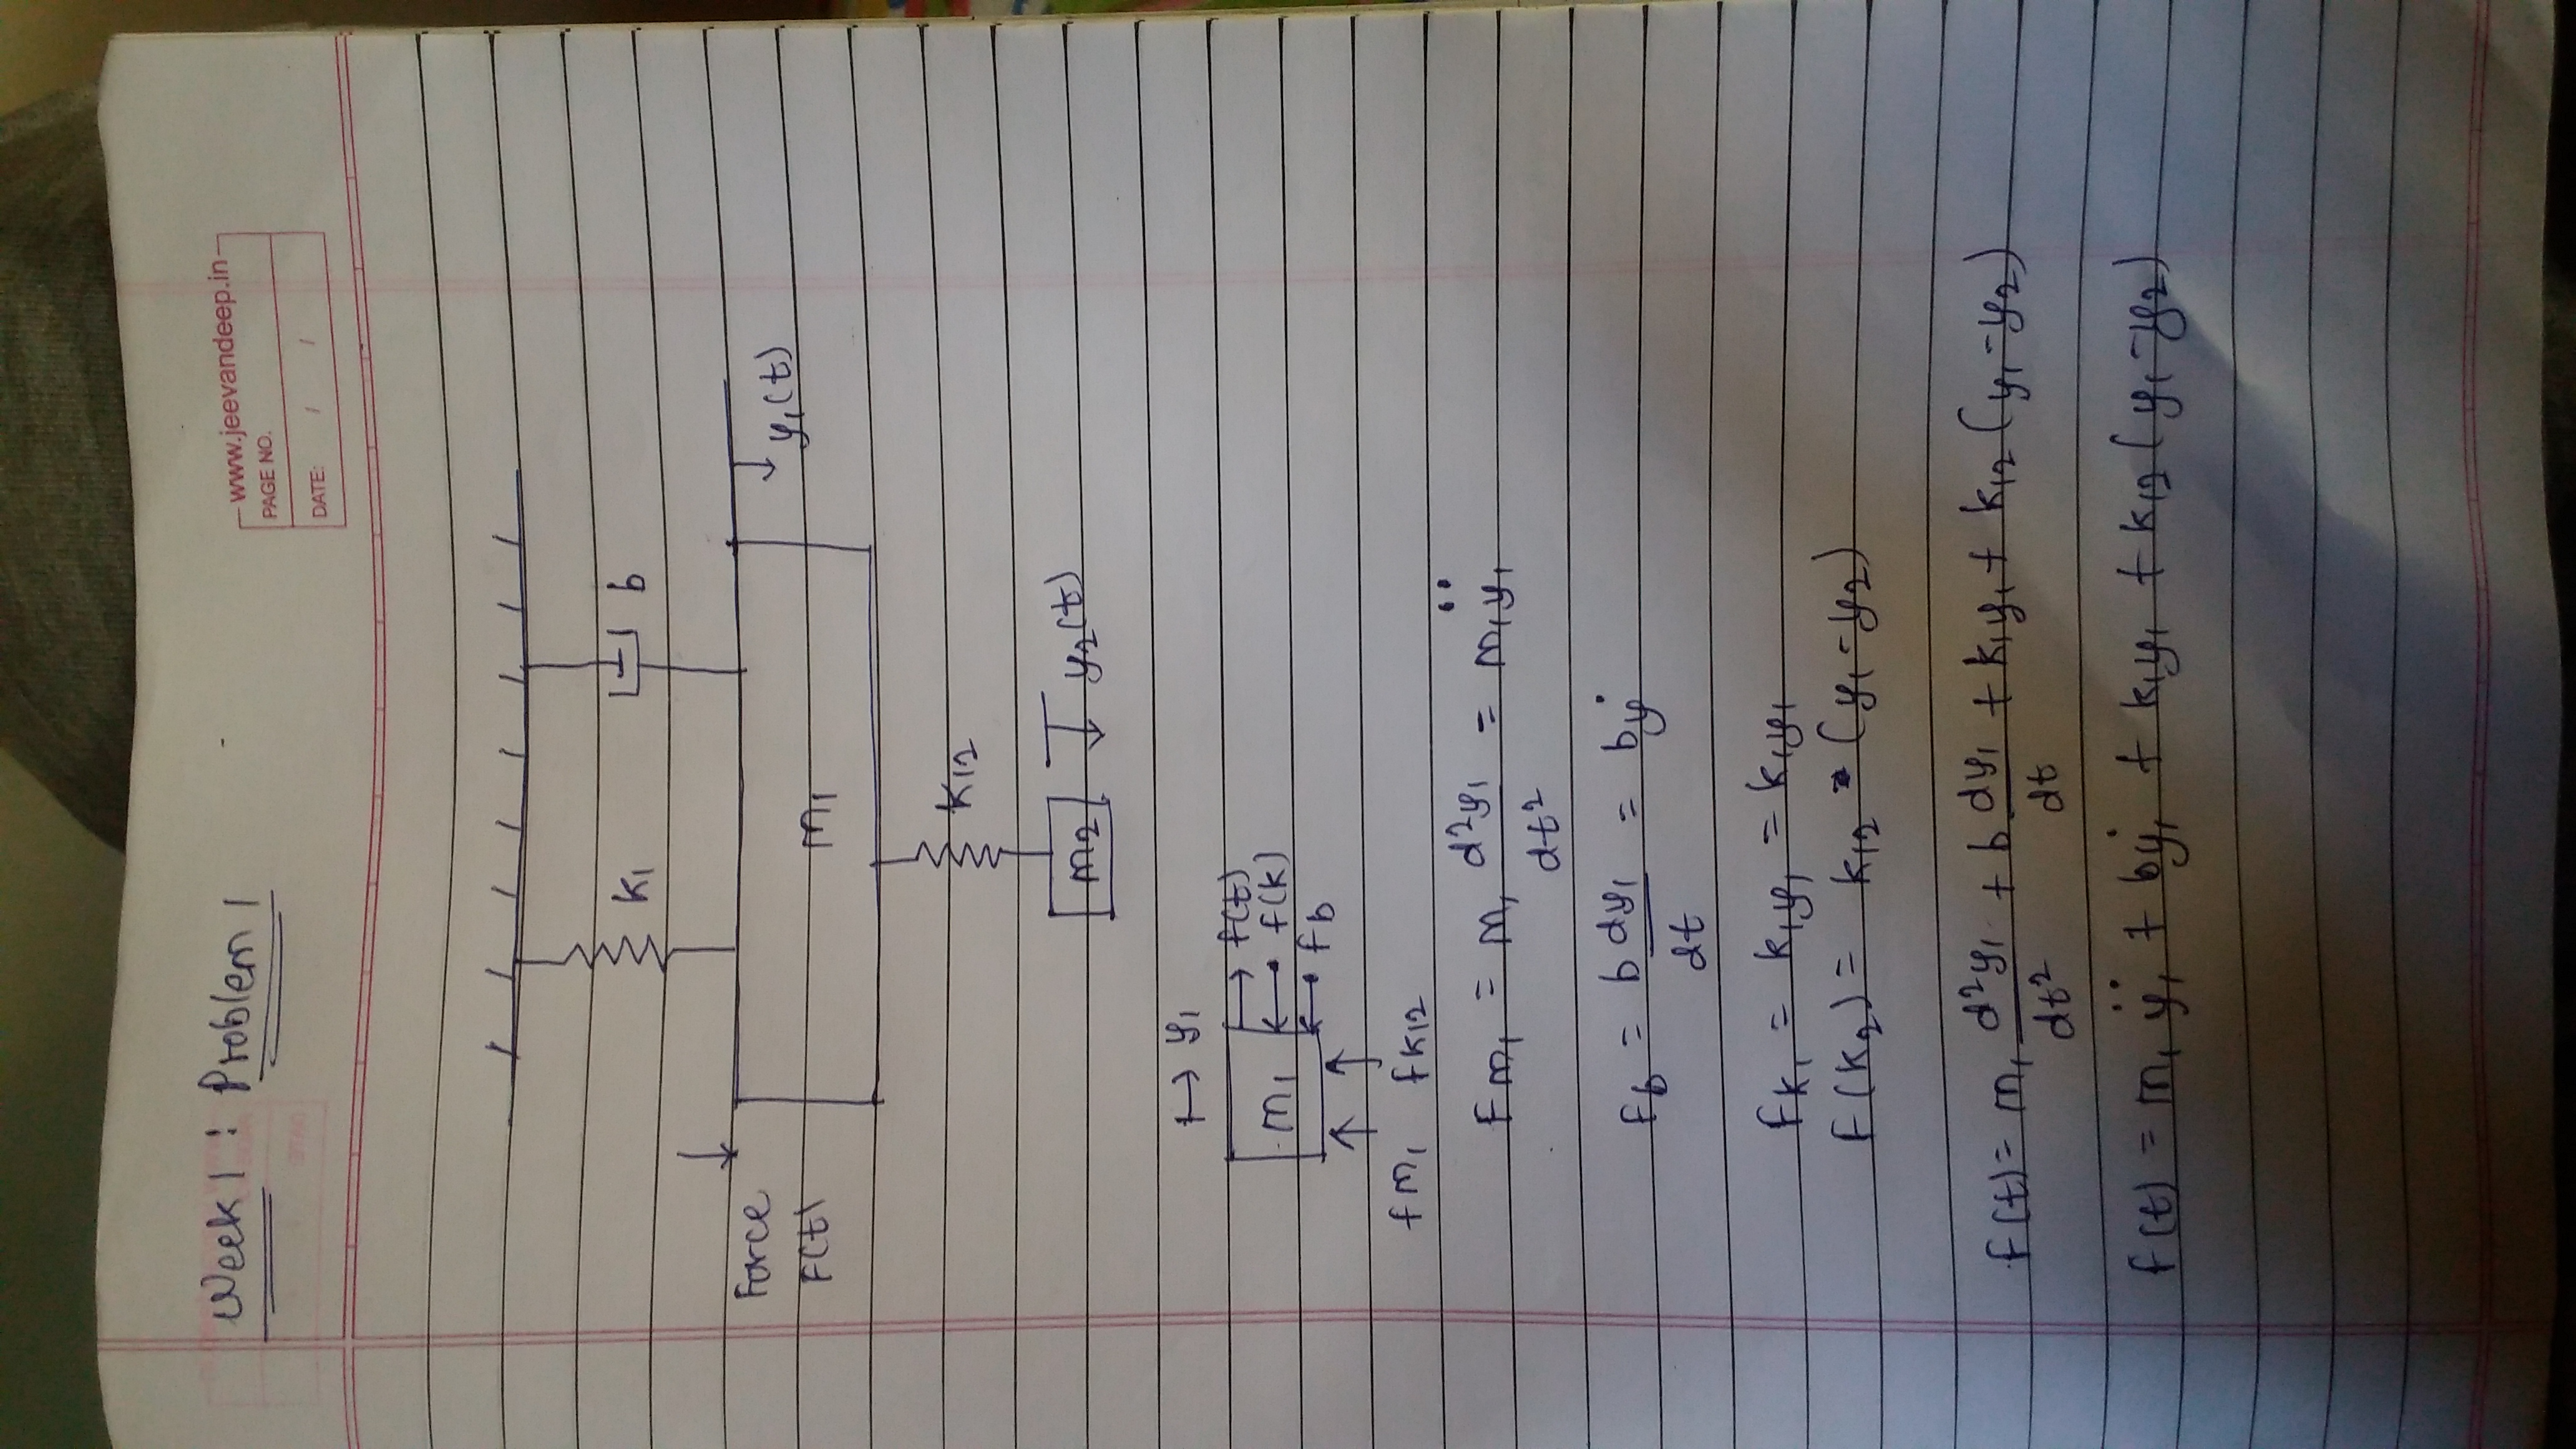 Week 1 : Problem 1
www.jeevandeep.in
PAGE NO.
DATE: / /
K1
b
Force
F(t)
y1(t)
m1
K12
m2
y2(t)
y1
m1
f(t)
f(k)
fb
fm1 fK12
Fm1 = m1 d²y1/dt² = m1ÿ1
Fb = b dy1/dt = bẏ
FK1 = k1y1 = k1y1
F(K2) = k12 (y1-y2)
F(t) = m1 d²y1/dt² + b dy1/dt + k1y1 + k12 (y1-y2)
f(t) = m1 ÿ1 + bẏ1 + k1y1 + k12 (y1-y2)